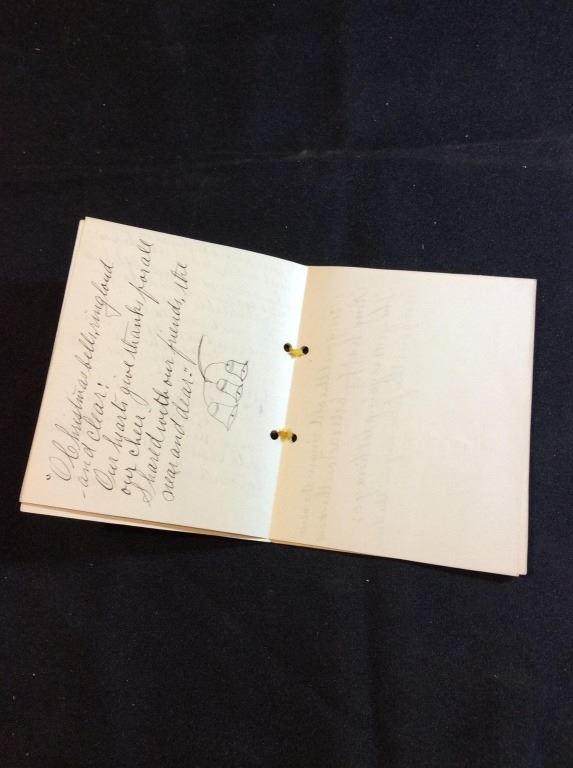 "O Christmas bells, ring loud
and clear!
Our hearts give thanks for all
our cheer
Shared with our friends, the
near and dear."